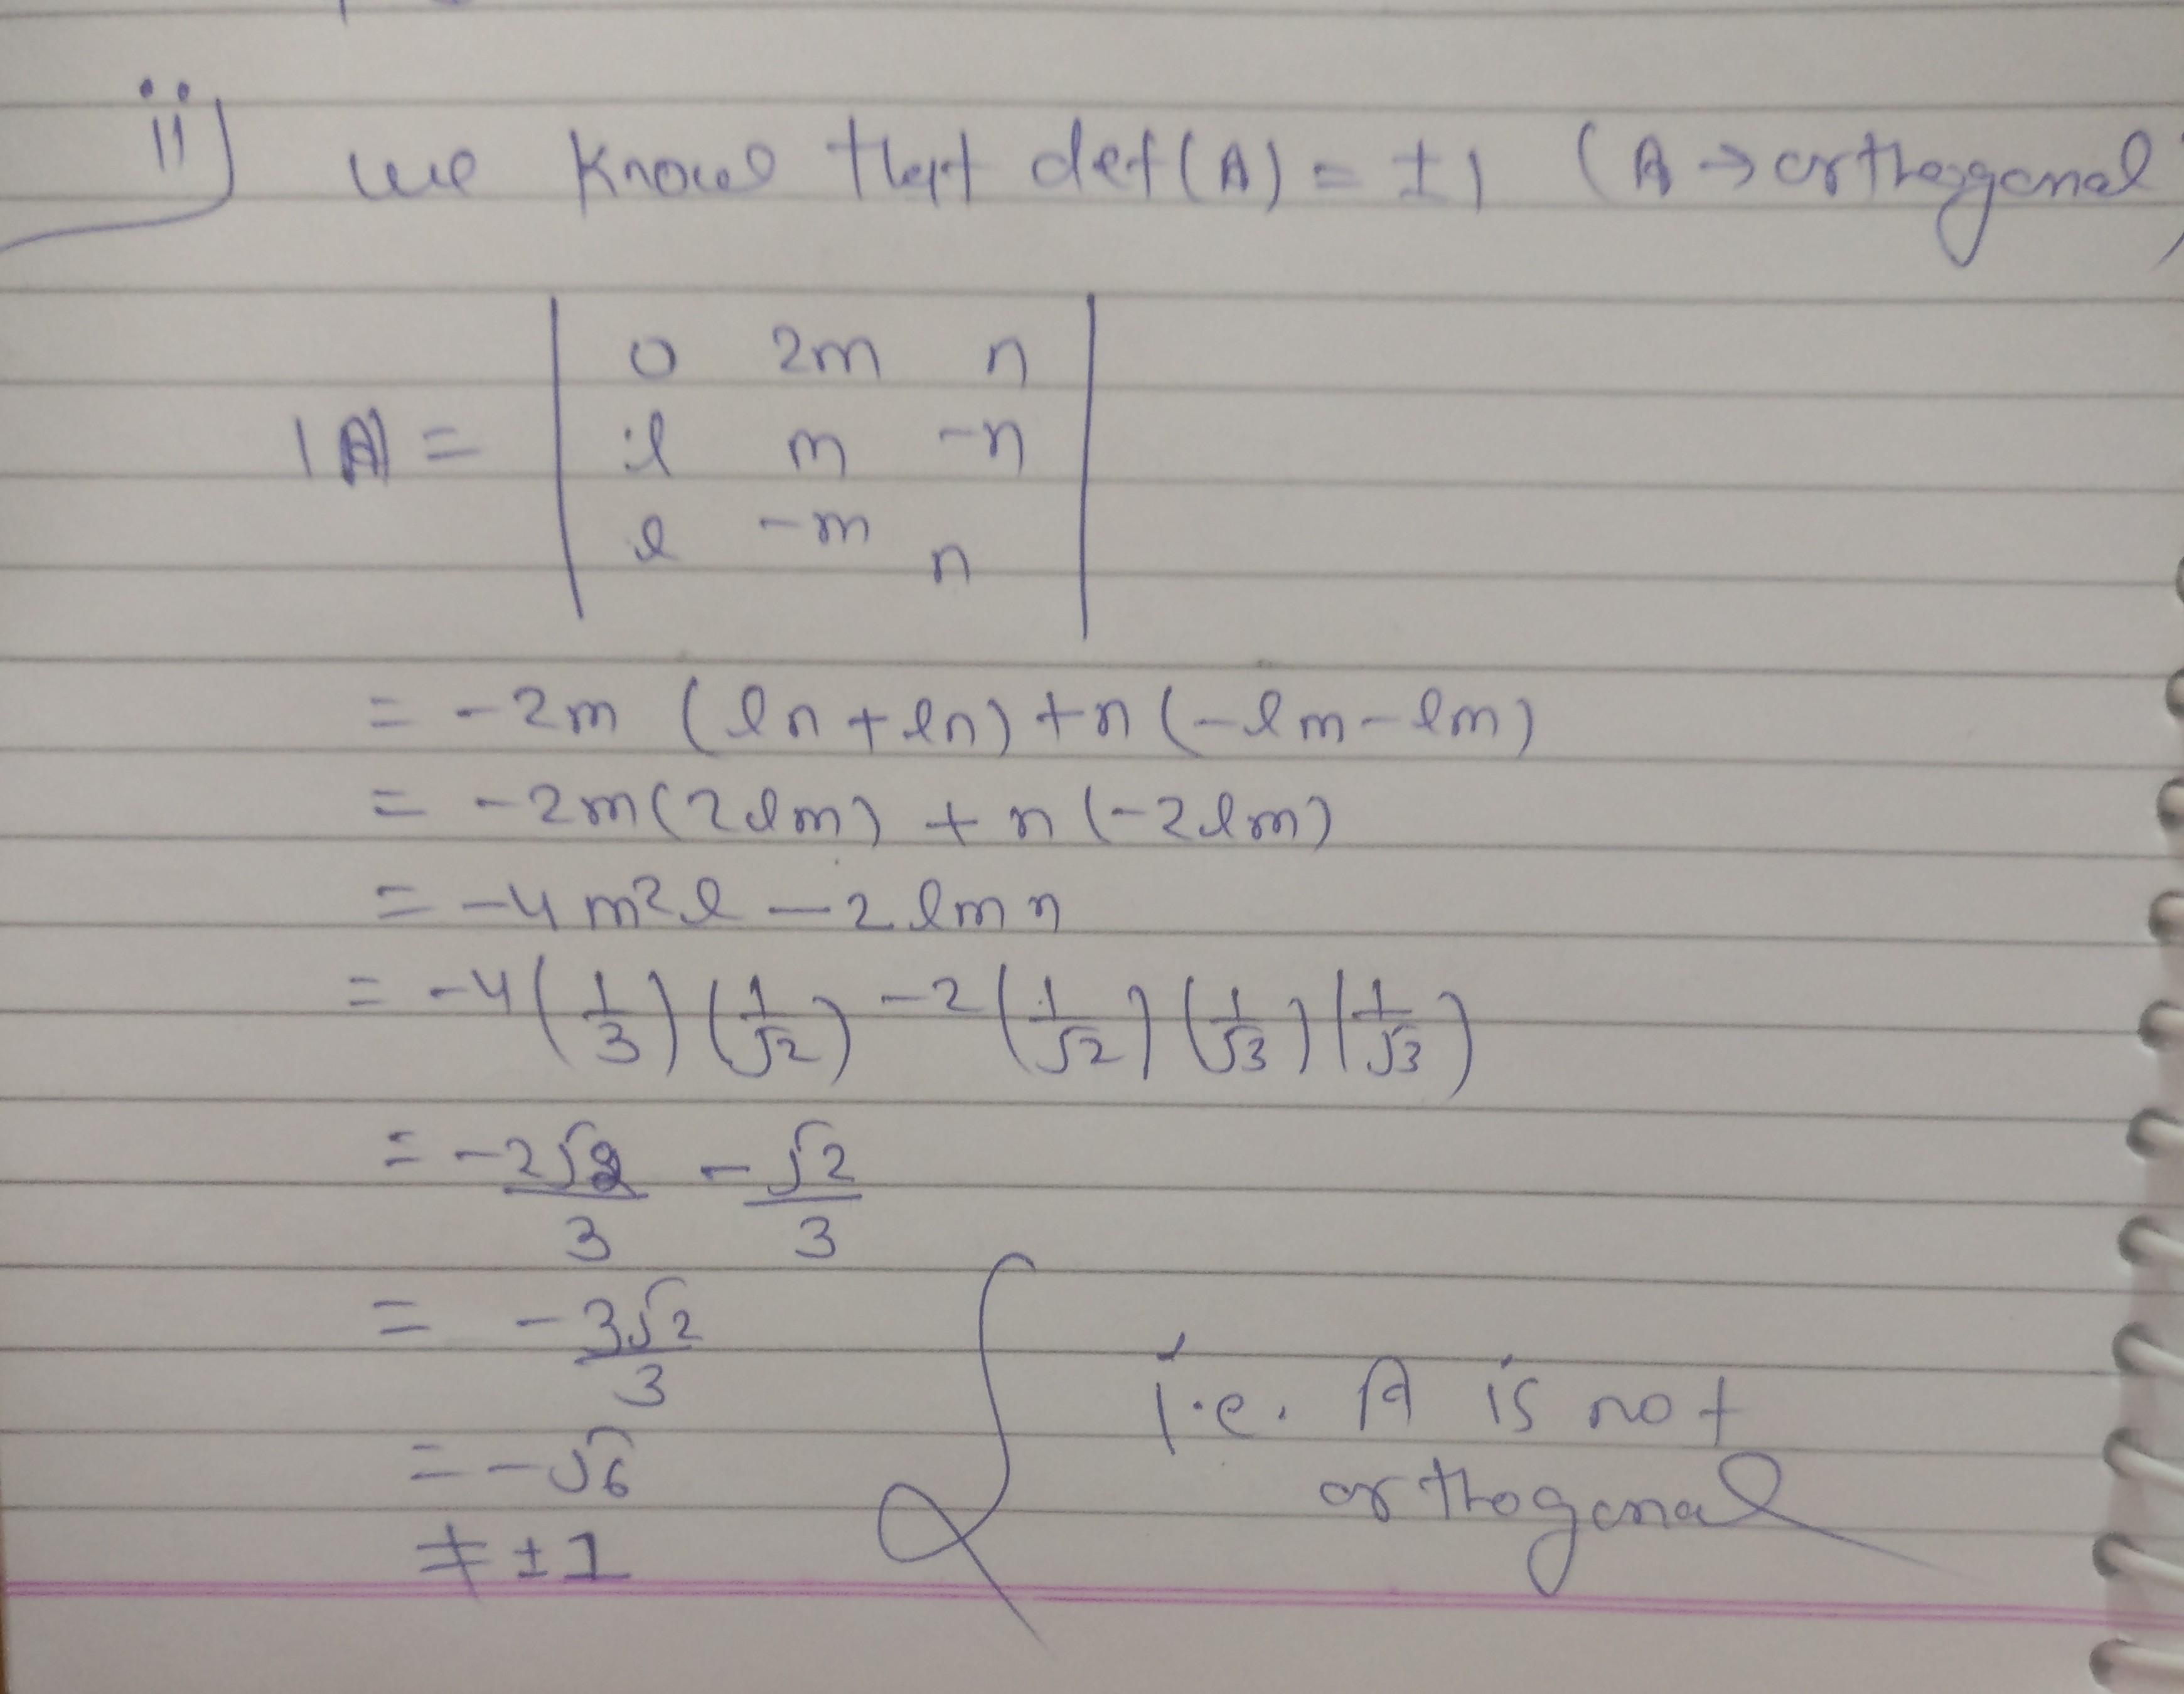 ii) we know that det(A) = ±1 (A → orthogonal)
|A| =
0 2m n
l m -n
l -m n
= -2m (ln + ln) + n(-lm - lm)
= -2m(2lm) + n(-2lm)
= -4m²l - 2lmn
= -4(1/3)(1/√2) -2(1/√2)(1/√3)(1/√3)
= -2√2/3 - √2/3
= -3√2/3
= -√6
≠ ±1
i.e. A is not
orthogonal